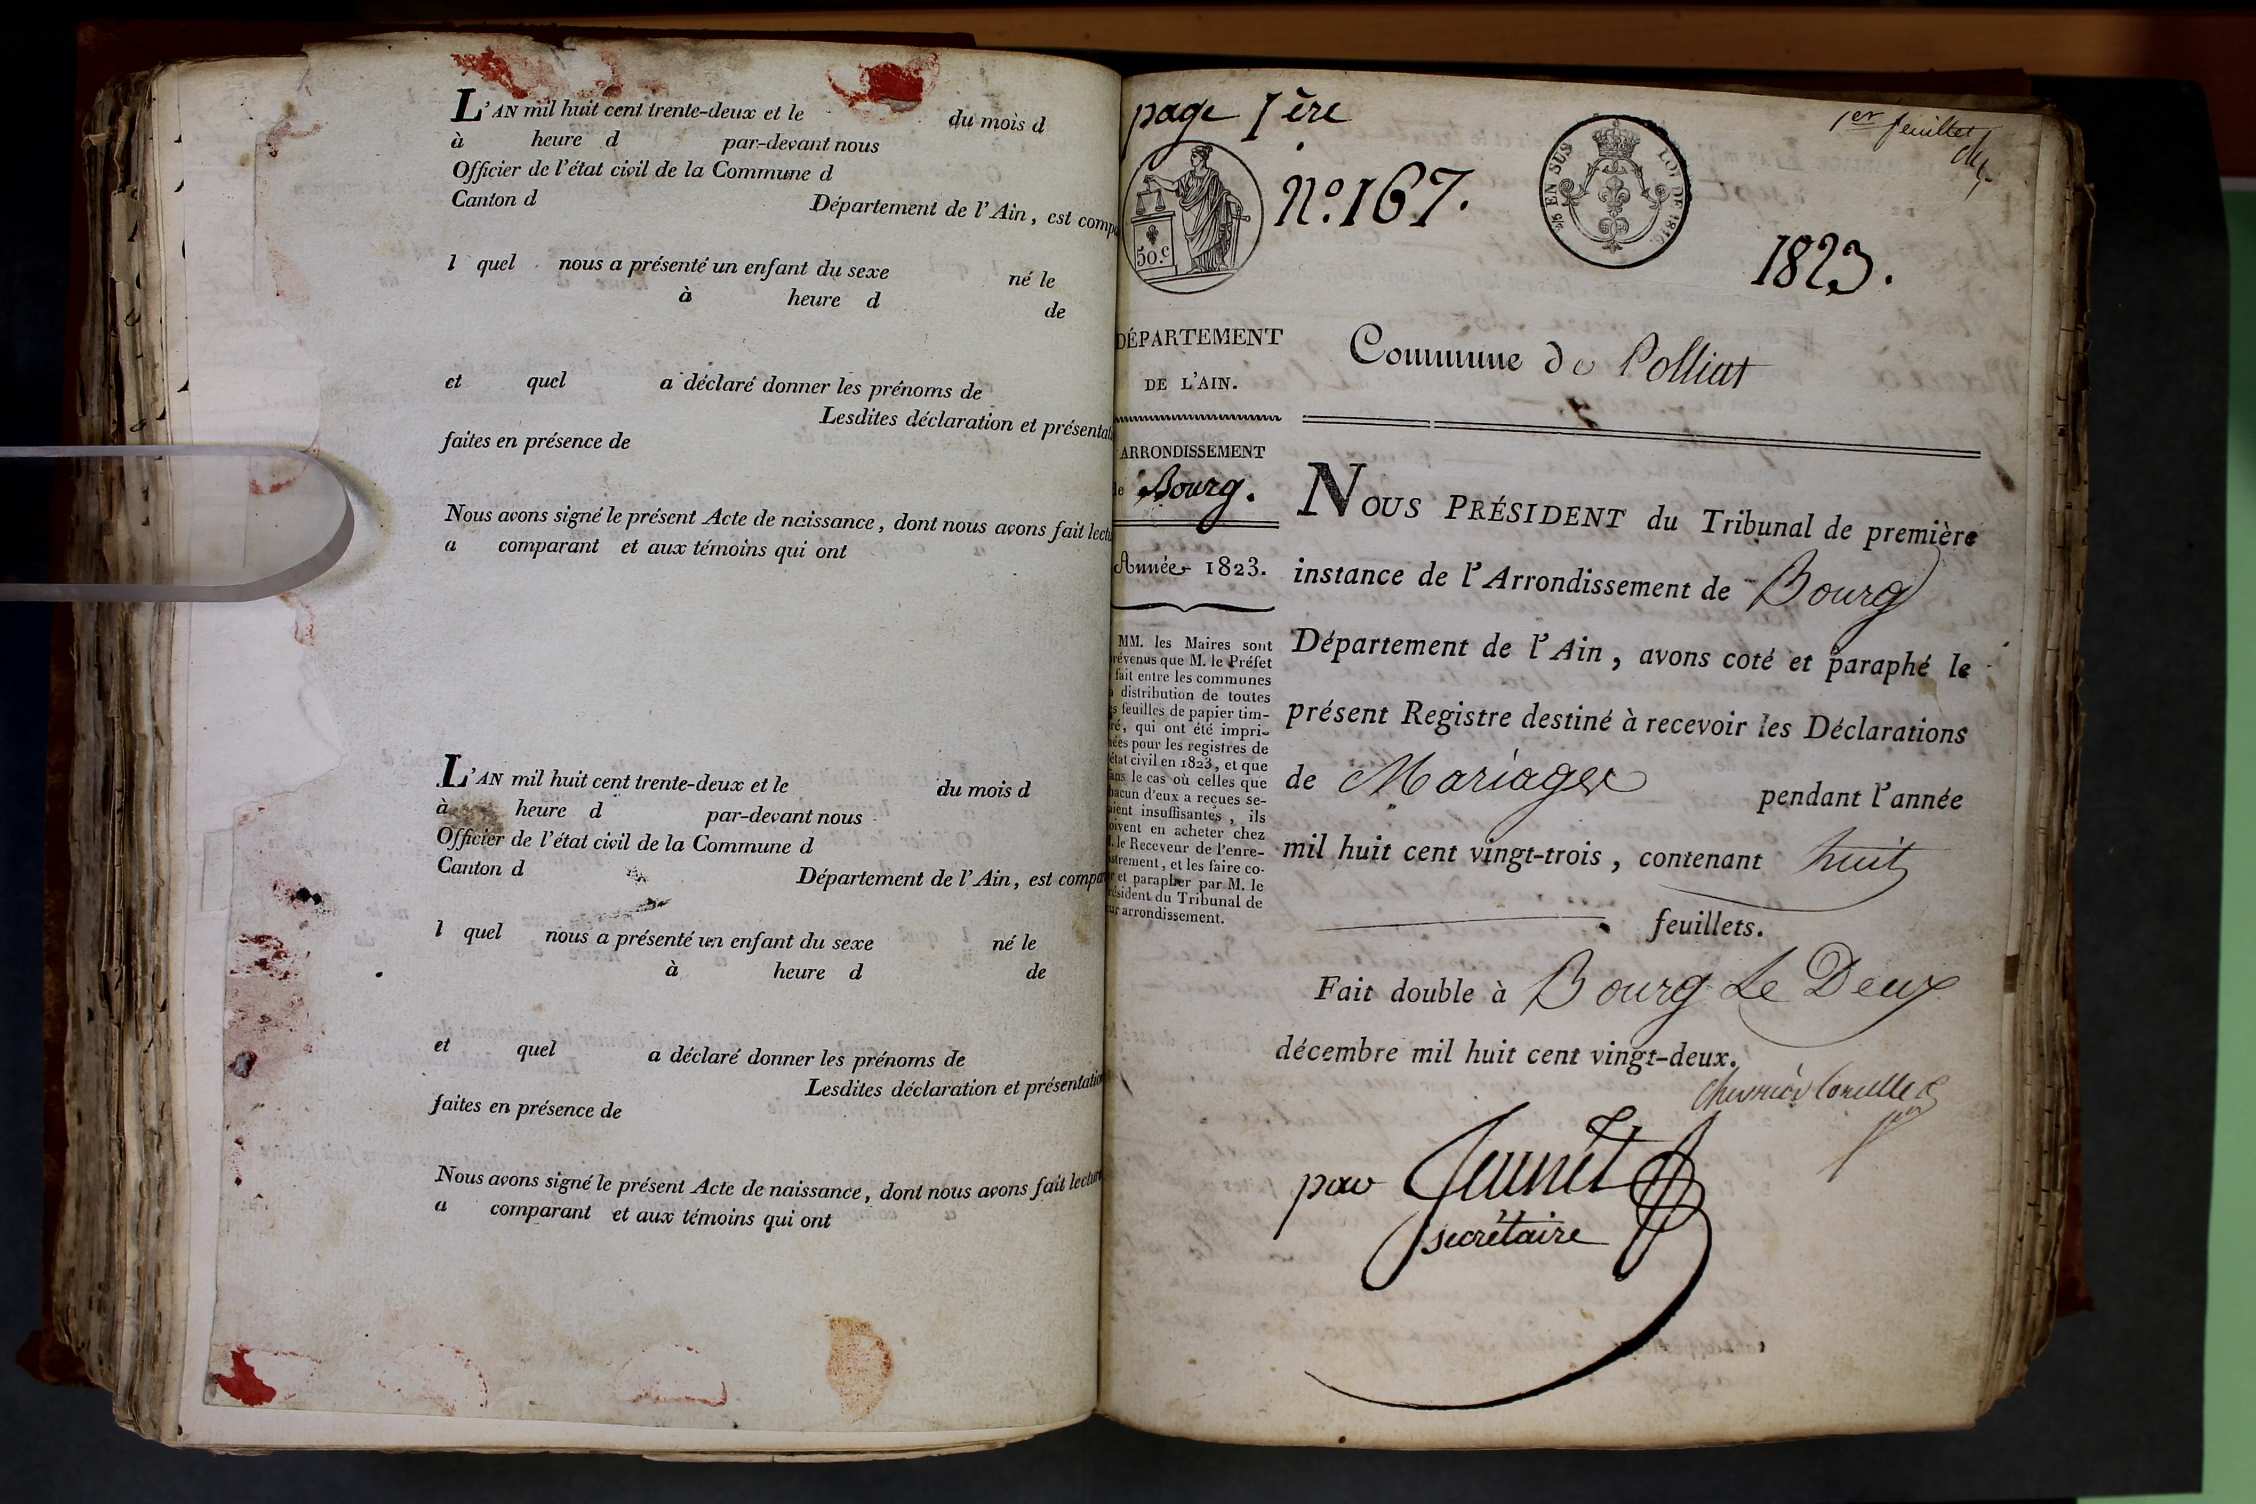 L'AN mil huit cent trente-deux et le du mois d
à heure d par-devant nous
Officier de l'état civil de la Commune d
Canton d Département de l'Ain, est comp
l quel nous a présenté un enfant du sexe né le
à heure d de
et quel a déclaré donner les prénoms de
Lesdites déclaration et présentat
faites en présence de
Nous avons signé le présent Acte de naissance, dont nous avons fait lectu
a comparant et aux témoins qui ont
L'AN mil huit cent trente-deux et le du mois d
à heure d par-devant nous
Officier de l'état civil de la Commune d
Canton d Département de l'Ain, est compar
l quel nous a présenté un enfant du sexe né le
à heure d de
et quel a déclaré donner les prénoms de
Lesdites déclaration et présentation
faites en présence de
Nous avons signé le présent Acte de naissance, dont nous avons fait lecture
a comparant et aux témoins qui ont
page 1ère
1er feuillet
50.c
N.º 167.
EN SUS LOI DE 1816.
1823.
DÉPARTEMENT
DE L'AIN.
ARRONDISSEMENT
de Bourg.
Année 1823.
MM. les Maires sont
prévenus que M. le Préfet
fait entre les communes
a distribution de toutes
es feuilles de papier tim-
ré, qui ont été impri-
mées pour les registres de
état civil en 1823, et que
ans le cas où celles que
hacun d'eux a reçues se-
aient insuffisantes, ils
oivent en acheter chez
M. le Receveur de l'enre-
istrement, et les faire co-
er et parapher par M. le
résident du Tribunal de
ur arrondissement.
Commune de Polliat
NOUS PRÉSIDENT du Tribunal de première
instance de l'Arrondissement de Bourg
Département de l'Ain, avons coté et paraphé le
présent Registre destiné à recevoir les Déclarations
de Mariages pendant l'année
mil huit cent vingt-trois, contenant huit
feuillets.
Fait double à Bourg Le Deux
décembre mil huit cent vingt-deux.
par
secrétaire